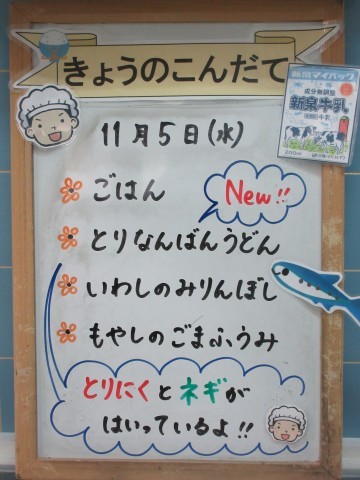 きょうのこんだて
11月5日(水)
ごはん
New!!
とりなんばんうどん
いわしのみりんぼし
もやしのごまふうみ
とりにくとネギが
はいっているよ!!
成分無調整
新泉牛乳
200ml